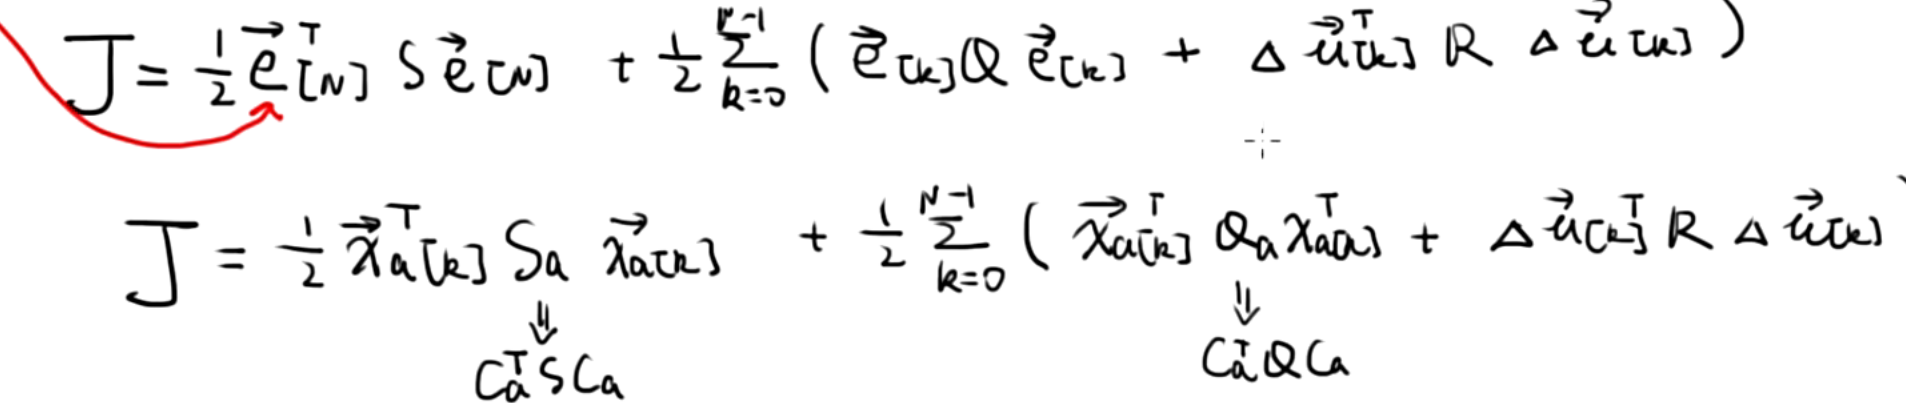 J = ½ e⃗ᵀ[N] S e⃗[N] + ½ Σ_{k=0}^{N-1} ( e⃗[k] Q e⃗[k] + Δu⃗ᵀ[k] R Δu⃗[k] )
J = ½ x⃗ₐᵀ[k] Sₐ x⃗ₐ[k] + ½ Σ_{k=0}^{N-1} ( x⃗ₐᵀ[k] Qₐ xₐᵀ[k] + Δu⃗ᵀ[k] R Δu⃗[k]
⇓ ⇓
CₐᵀSCₐ CₐᵀQCₐ